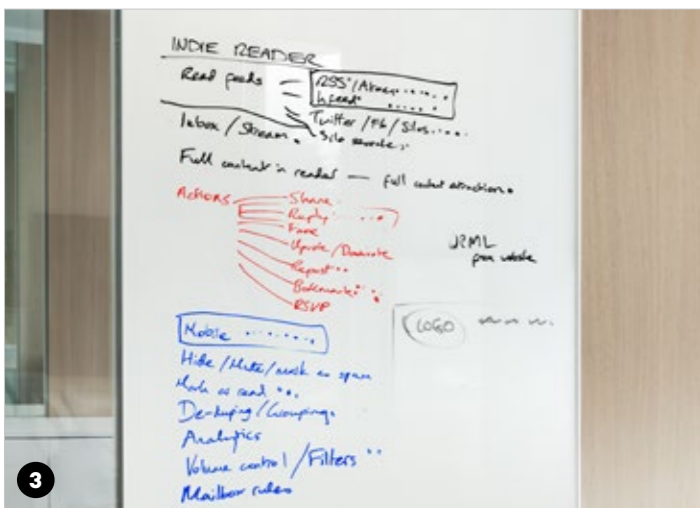 INDIE READER
Read feeds
RSS/Atom
hfeed
Twitter/FB/Silos
Silo search
Inbox/Stream
Full content in reader — full content extraction
Actions
Share
Reply
Fave
Upvote/Downvote
Repost
Bookmark
RSVP
Mobile
Hide/Mute/mark as spam
Mark as read
De-duping/Grouping
Analytics
Volume control/Filters
Mailbox rules
LOGO
3